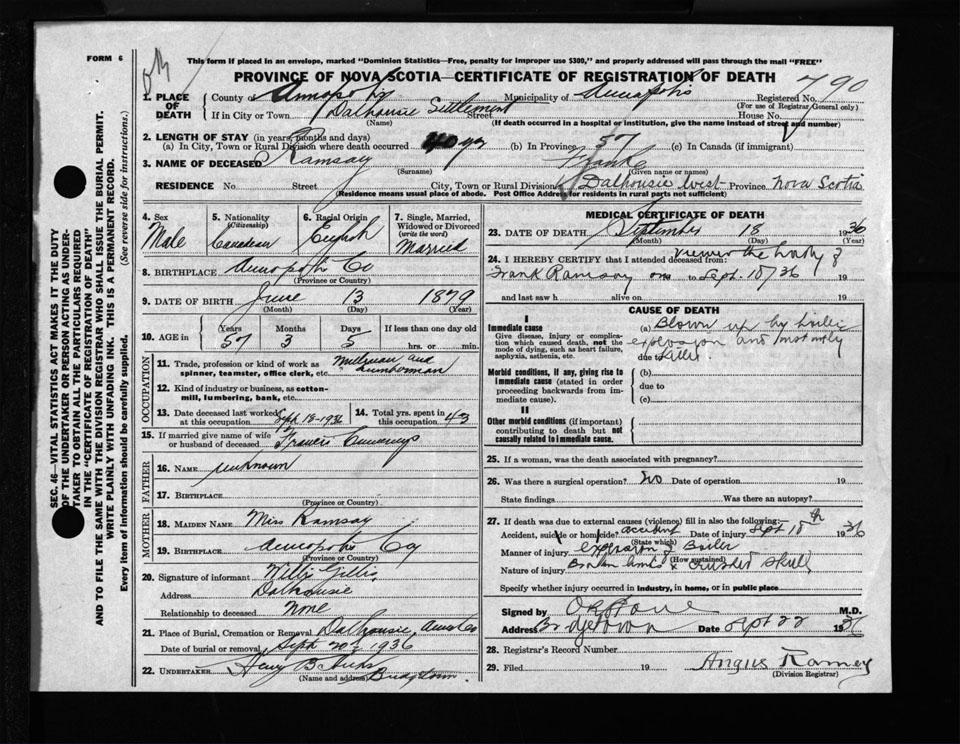 FORM 6
ok
This form if placed in an envelope, marked "Dominion Statistics—Free, penalty for improper use $300," and properly addressed will pass through the mail "FREE"
PROVINCE OF NOVA SCOTIA—CERTIFICATE OF REGISTRATION OF DEATH
790
1. PLACE OF DEATH
County of Annapolis Municipality of Annapolis Registered No.
(For use of Registrar General only)
If in City or Town Dalhousie Settlement Street House No.
(Name) (If death occurred in a hospital or institution, give the name instead of street and number)
2. LENGTH OF STAY (in years, months and days)
(a) In City, Town or Rural Division where death occurred 40 yr (b) In Province 57 (c) In Canada (if immigrant)
3. NAME OF DECEASED Ramsay Frank
(Surname) (Given name or names)
RESIDENCE No. Street City, Town or Rural Division Dalhousie West Province Nova Scotia
(Residence means usual place of abode. Post Office Address for residences in rural parts not sufficient)
4. Sex
Male
5. Nationality
(Citizenship)
Canadian
6. Racial Origin
English
7. Single, Married, Widowed or Divorced
(write the word)
Married
8. BIRTHPLACE Annapolis Co
(Province or Country)
9. DATE OF BIRTH June 13 1879
(Month) (Day) (Year)
10. AGE in
Years Months Days If less than one day old
57 3 5 hrs. or min.
OCCUPATION
11. Trade, profession or kind of work as spinner, teamster, office clerk, etc. Millman and Lumberman
12. Kind of industry or business, as cotton-mill, lumbering, bank, etc.
13. Date deceased last worked at this occupation Sept 18-1936
14. Total yrs. spent in this occupation 43
15. If married give name of wife or husband of deceased Frances Cummings
FATHER
16. NAME unknown
17. BIRTHPLACE
(Province or Country)
MOTHER
18. MAIDEN NAME Miss Ramsay
19. BIRTHPLACE Annapolis Co
(Province or Country)
20. Signature of informant Willis Gillis
Address Dalhousie
Relationship to deceased None
21. Place of Burial, Cremation or Removal Dalhousie, Anna Co
Date of burial or removal Sept 20 1936
22. UNDERTAKER Henry B.
(Name and address) Bridgetown.
MEDICAL CERTIFICATE OF DEATH
23. DATE OF DEATH September 18 1936
(Month) (Day) (Year)
24. I HEREBY CERTIFY that I attended deceased from: viewed the body of
Frank Ramsay on to Sept. 18/36 19
and last saw h alive on 19
CAUSE OF DEATH
I
Immediate cause
Give disease, injury or complication which caused death, not the mode of dying, such as heart failure, asphyxia, asthenia, etc.
(a) Blown up by boiler
explosion and instantly
due to killed.
Morbid conditions, if any, giving rise to immediate cause (stated in order proceeding backwards from immediate cause).
(b)
due to
(c)
II
Other morbid conditions (if important) contributing to death but not causally related to immediate cause.
25. If a woman, was the death associated with pregnancy?
26. Was there a surgical operation? No Date of operation 19
State findings Was there an autopsy?
27. If death was due to external causes (violence) fill in also the following:
Accident, suicide or homicide? accident Date of injury Sept 18th 1936
(State which)
Manner of injury explosion of Boiler
(How sustained)
Nature of injury Broken limbs & crushed skull
Specify whether injury occurred in industry, in home, or in public place
Signed by M.D.
Address Bridgetown Date Sept 22 1936
28. Registrar's Record Number
29. Filed 19 Angus Ramey
(Division Registrar)
SEC. 46—VITAL STATISTICS ACT MAKES IT THE DUTY
OF THE UNDERTAKER OR PERSON ACTING AS UNDER-
TAKER TO OBTAIN ALL THE PARTICULARS REQUIRED
IN THE "CERTIFICATE OF REGISTRATION OF DEATH"
AND TO FILE THE SAME WITH THE DIVISION REGISTRAR WHO SHALL ISSUE THE BURIAL PERMIT.
WRITE PLAINLY WITH UNFADING INK. THIS IS A PERMANENT RECORD.
Every item of information should be carefully supplied. (See reverse side for instructions.)